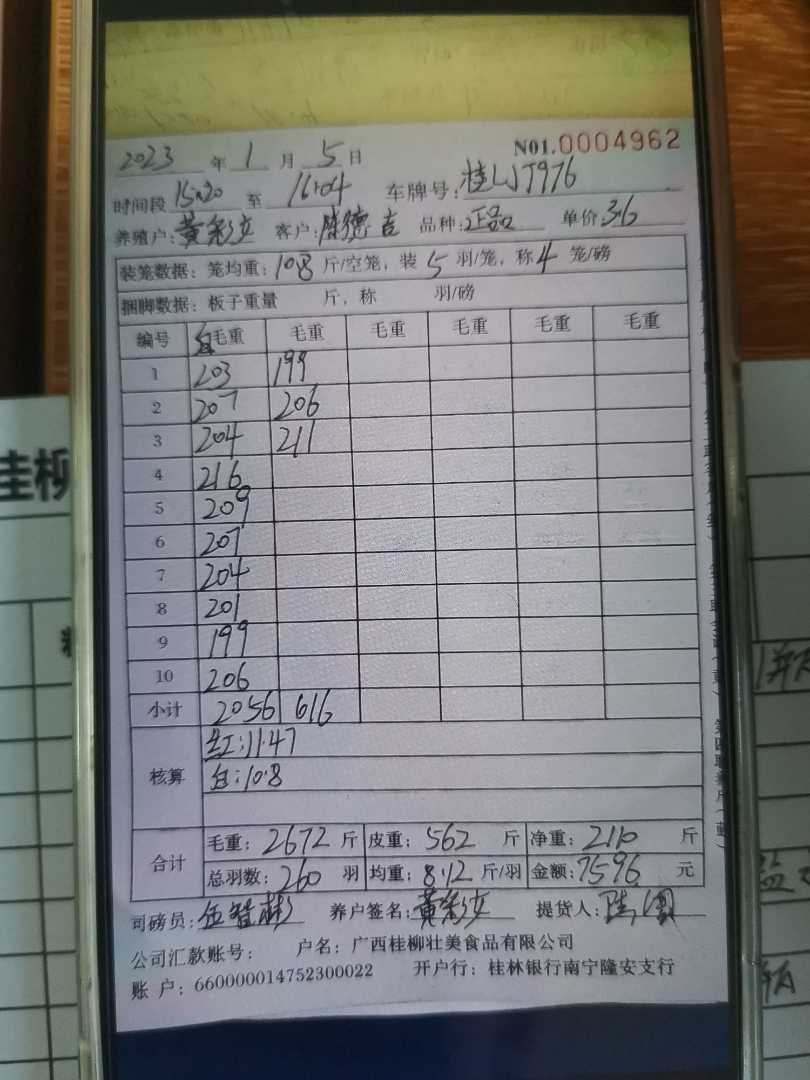 2023 年 1 月 5 日 N01.0004962
时间段 15:20 至 16:04 车牌号:桂LJT976
养殖户:黄彩文 客户:陈德吉 品种:正品 单价 3.6
装笼数据: 笼均重: 10.8 斤/空笼, 装 5 羽/笼, 称 4 笼/磅
捆脚数据: 板子重量 斤, 称 羽/磅
编号 白毛重 毛重 毛重 毛重 毛重 毛重
1 203 199
2 207 206
3 204 211
4 216
5 209
6 207
7 204
8 201
9 199
10 206
小计 2056 616
核算 红:11.47
白:10.8
合计 毛重: 2672 斤 皮重: 562 斤 净重: 2110 斤
总羽数: 260 羽 均重: 8.12 斤/羽 金额: 7596 元
司磅员: 伍智彬 养户签名: 黄彩文 提货人:
公司汇款账号: 户名: 广西桂柳壮美食品有限公司
账 户: 660000014752300022 开户行: 桂林银行南宁隆安支行
桂柳